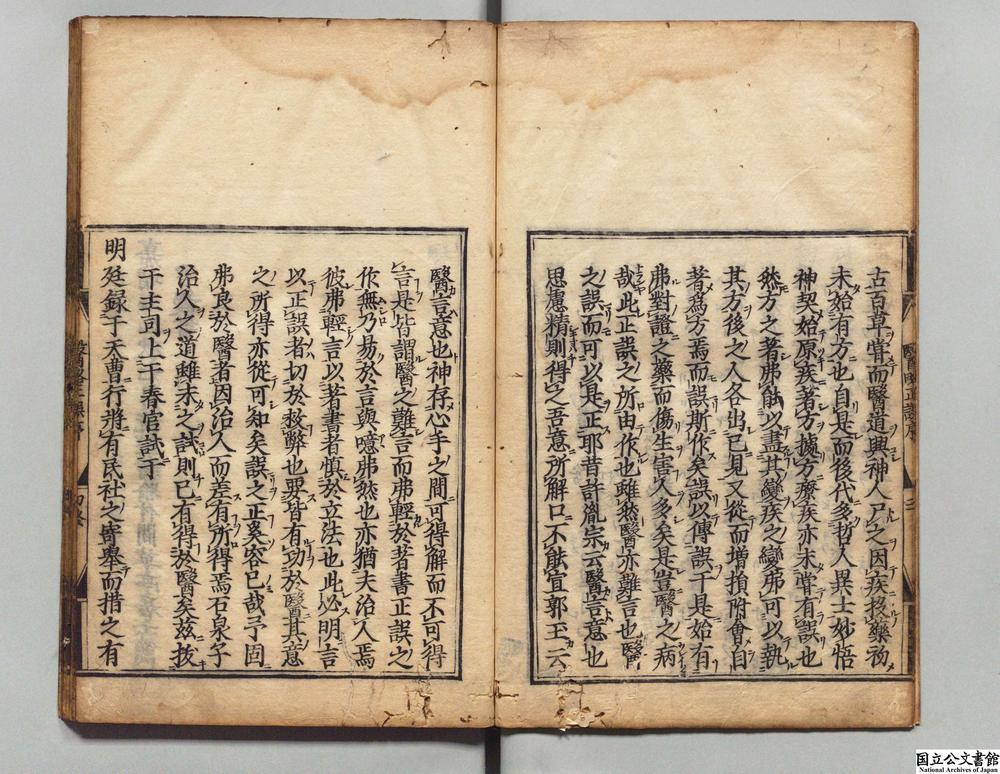 古百草嘗而醫道興神人尸之因疾投藥初
未始有方也自是而後代多哲人異士妙悟
神契始原疾著方據方療疾亦未嘗有誤也
然方之著弗能以盡其變疾之變弗可以執
其方後之人各出己見又從而增損附會自
著為方焉而誤斯作矣誤以傳誤于是始有
弗對證之藥而傷生害人多矣是豈醫之病
哉此正誤之所由作也雖然醫亦難言也醫
之誤而可以是正耶昔許胤宗云醫言意也
思慮精則得之吾意所解口不能宣郭玉云
醫言意也神存心手之間可得解而不可得
言是皆謂醫之難言而弗輕於著書正誤之
作無乃易於言與噫弗然也亦猶夫治人焉
彼弗輕言以著書者慎於立法也此必明言
以正誤者切於救弊也要皆有功於醫其意
之所得亦從可知矣誤之正奚容已哉予固
弗良於醫者因治人而差有所得焉石泉子
治人之道雖未之試則已有得於醫矣茲拔
于主司上于春官試于
明廷錄于天曹行將有民社之寄舉而措之有
國立公文書館
National Archives of Japan